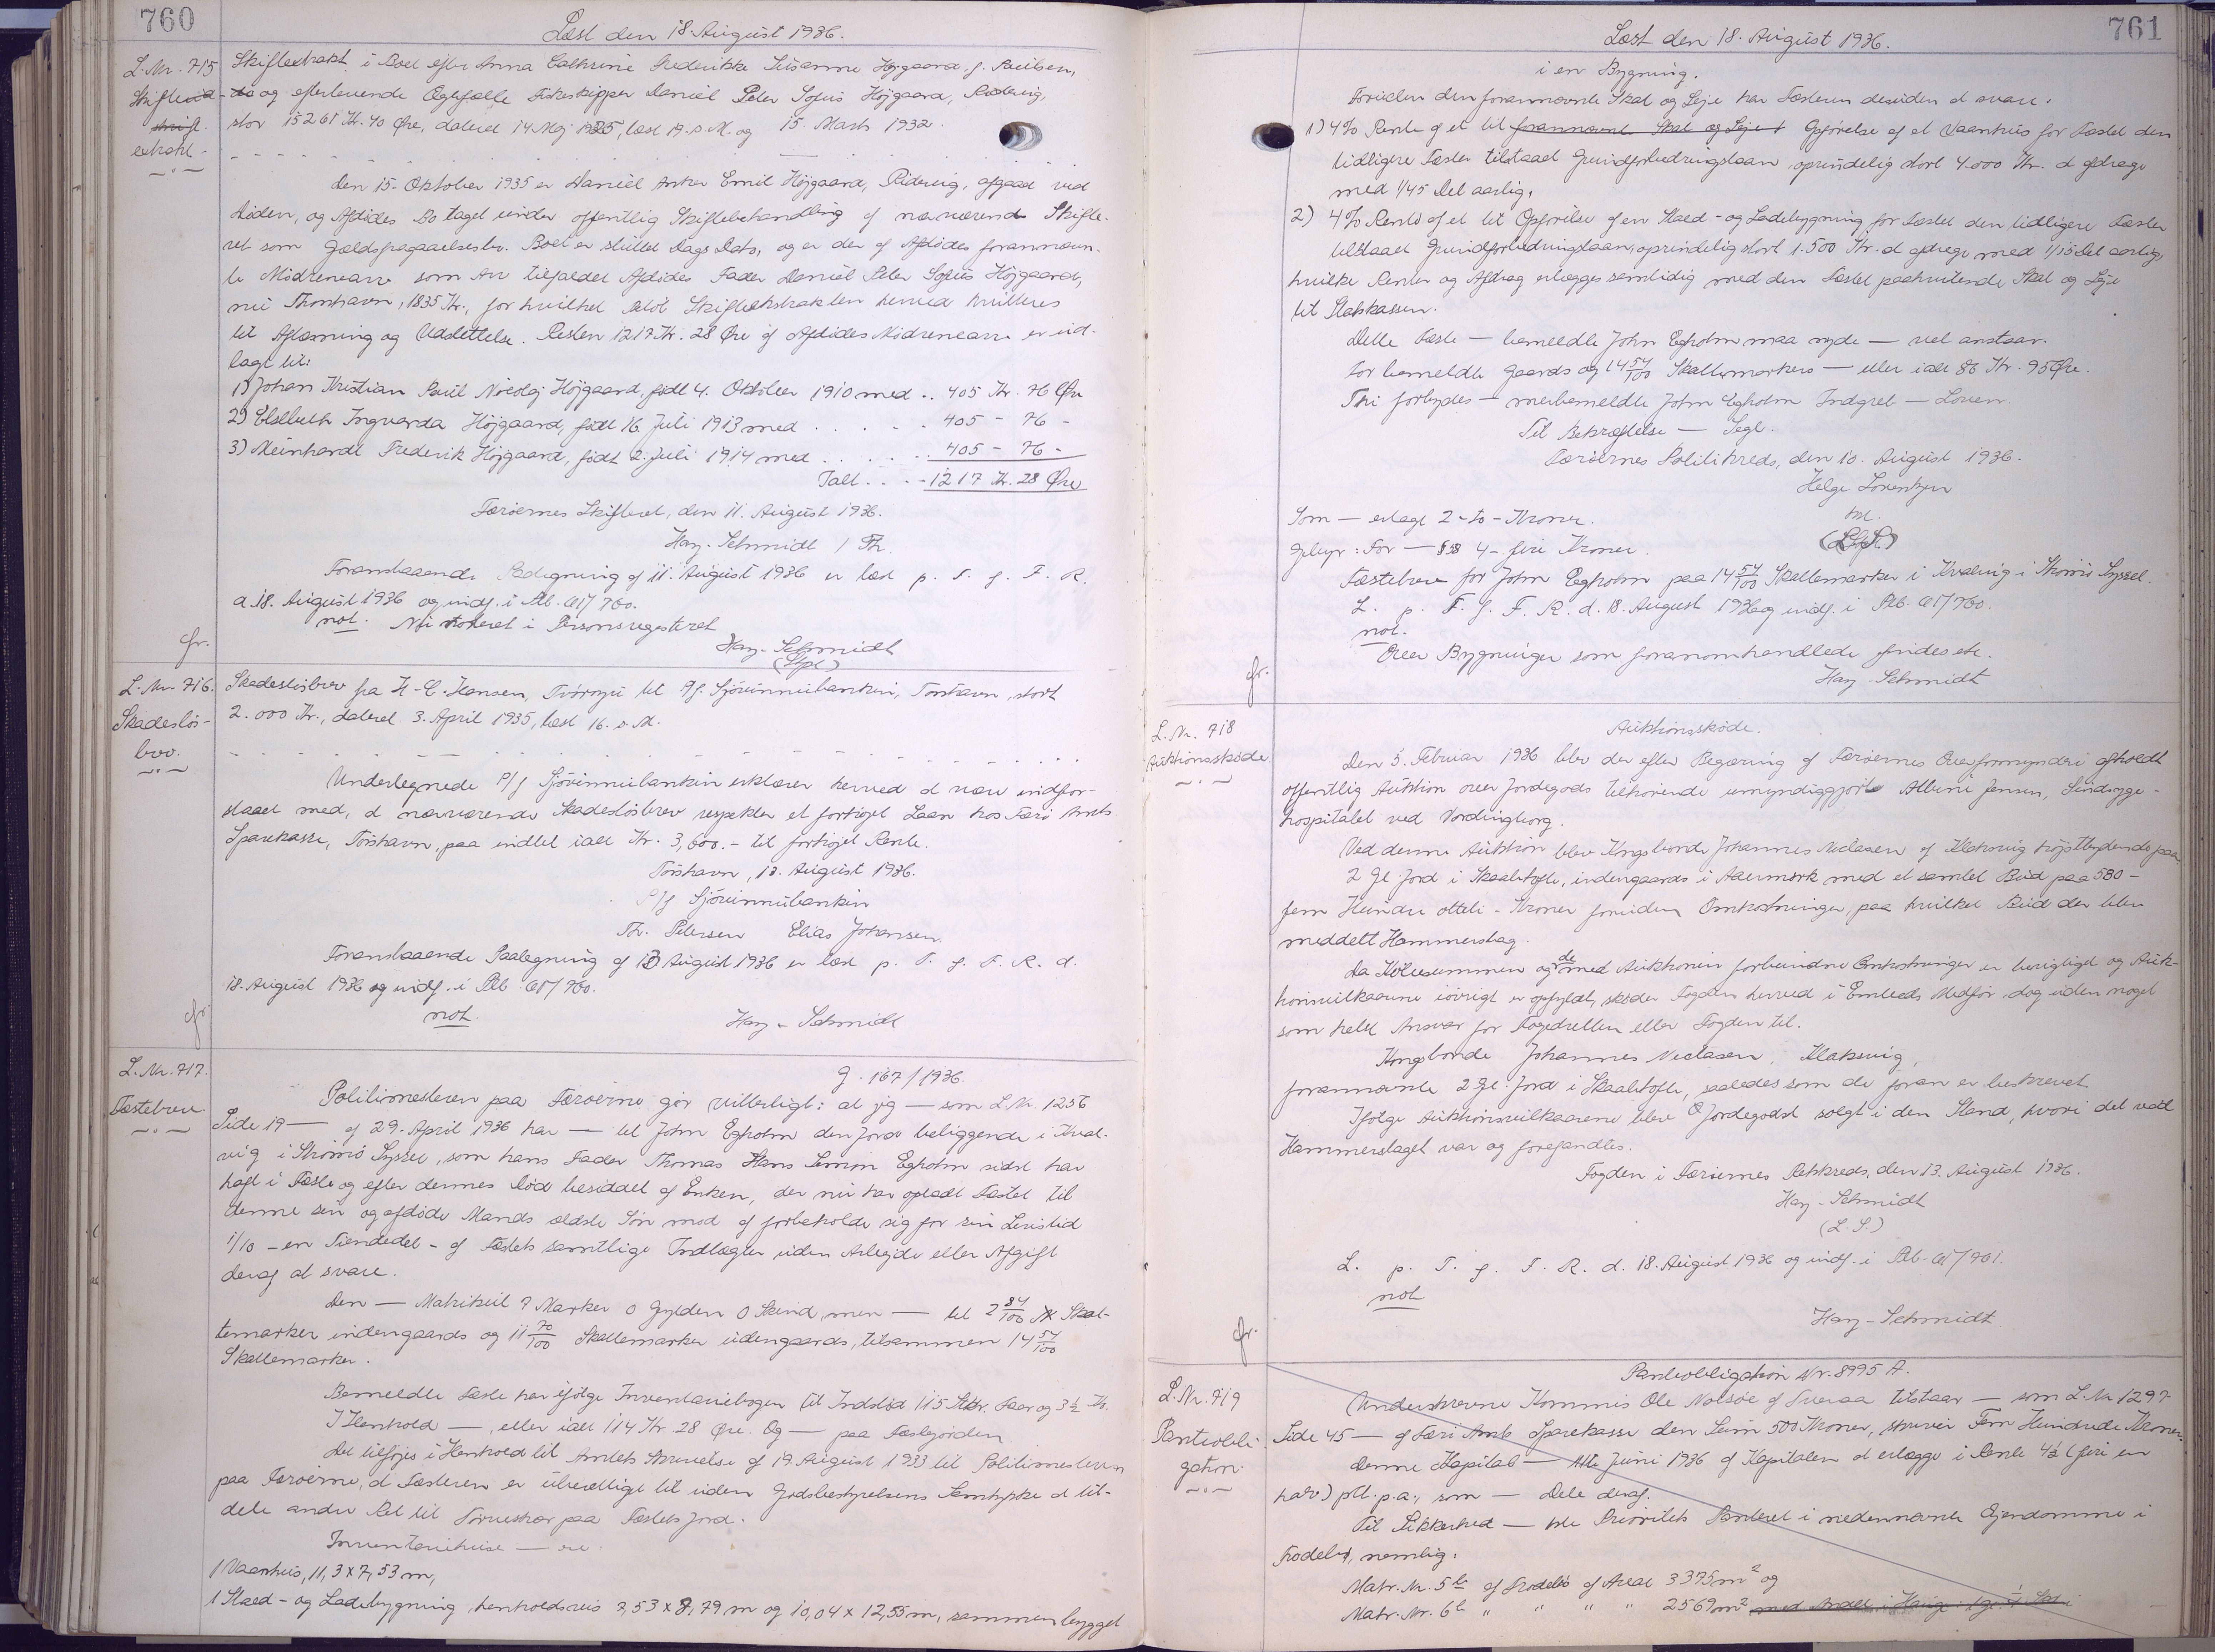 760
Læst den 18. August 1936.
L. Nr. 715
Skifte
extrakt.
Skifteextrakt i Boet efter Anna Cathrine Frederikke Susanne Højgaard, f. Poulsen,
og efterlevende Ægtefælle Fiskeskipper Daniel Peter Sofus Højgaard,
stor 15261 Kr. 40 Øre, dateret 14 Maj 1925, læst 19. s. M. og 15. Marts 1932.
Den 15. Oktober 1935 er Daniel Anker Emil Højgaard, afgaaet ved
Døden, og Afdødes Bo taget under offentlig Skiftebehandling af nærværende Skifte-
ret som Gældsfragaaelsesbo. Boet er sluttet Dags Dato, og er der af Afdødes forannævn-
te Mødrenearv som Arv tilfaldet Afdødes Fader Daniel Peter Sofus Højgaard,
nu Thorshavn, 1835 Kr., for hvilket Beløb Skifteekstrakten herved kvitteres
til Aflæsning og Udslettelse. Resten 1217 Kr. 28 Øre af Afdødes Mødrenearv er ud-
lagt til:
1) Johan Kristian Paul Nicolaj Højgaard, født 4. Oktober 1910 med .. 405 Kr. 76 Øre
2) Elsebeth Ingvarda Højgaard, født 16. Juli 1913 med . . . . . 405 - 76 -
3) Meinhardt Frederik Højgaard, født 2. Juli 1914 med . . . . . 405 - 76 -
Ialt . . . 1217 Kr. 28 Øre
Færøernes Skifteret, den 11. August 1936.
Hary-Schmidt / Th.
Foranstaaende Paategning af 11. August 1936 er læst p. T. f. F. R.
d. 18. August 1936 og indf. i Plb.
not. Nu noteret i Personsregisteret
Hary-Schmidt
fr.
L. Nr. 716.
Skadesløs-
brev.
Skadesløsbrev fra H. C. Hansen, Tvöroyri til P/f. Sjóvinnubankin, Torshavn, stort
2.000 Kr., dateret 3. April 1935, læst 16. s. M.
Undertegnede P/f Sjóvinnubankin erklærer herved at være indfor-
staaet med, at nærværende Skadesløsbrev respekter et forhøjet Laan hos Færø Amts
Sparekasse, Tórshavn, paa indtil ialt Kr. 3,600.- til forhøjet Rente.
Tórshavn, 13. August 1936.
P/f Sjóvinnubankin
Th. Petersen Elias Johansen
Foranstaaende Paategning af 13 August 1936 er læst p. T. f. F. R. d.
18. August 1936 og indf. i Plb.
not.
Hary-Schmidt
fr.
L. Nr. 717.
Fæstebrev
J. 167/1936.
Politimesteren paa Færøerne gør vitterligt: at jeg — som L. Nr. 1256
Side 19 — af 29. April 1936 har — til John Egholm den Jord beliggende i Kval-
vig i Strømø Syssel, som hans Fader Thomas Hans Simon Egholm sidst har
haft i Fæste og efter dennes Død besiddet af Enken, der nu har opladt Fæstet til
denne sin og afdøde Mands ældste Søn mod at forbeholde sig for sin Levetid
1/10 - en Tiendedel - af Fæstets samtlige Indtægter uden Arbejde eller Afgift
deraf at svare.
Den — Matrikul 9 Marker 0 Gylden 0 Skind, men — til 2 84/100 Skat-
temarker indengaards og 11 70/100 Skattemarker udengaards, tilsammen 14 54/100
Skattemarker.
Bemeldte Fæste har ifølge Inventariebogen til Indstød 115 Stkr. Faar og 3½ K.
I Henhold — , eller ialt 114 Kr. 28 Øre. Og — paa Fæstejorden
Det tilføjes i Henhold til Amtets Skrivelse af 19 August 1933 til Politimesteren
paa Færøerne, at Fæsteren er uberettiget til uden Godsbestyrelsens Samtykke at til-
dele andre Ret til Tørveskær paa Fæstets Jord.
Inventariehuse — er:
1 Vaanhus, 11,3 x 7,53 m,
1 Stald- og Ladebygning, henholdsvis 7,53 x 8,79 m og 10,04 x 12,55 m, sammenbygget
761
Læst den 18. August 1936.
i en Bygning.
Foruden den forannævnte Skat og Leje har Fæsteren desuden at svare:
1) 4% Rente af et til forannævnte Skat og Leje t Opførelse af et Vaanhus for Fæstet den
tidligere Fæster tilstaaet Grundforbedringslaan, oprindelig stort 4.000 Kr. at afdrage
med 1/45 Del aarlig,
2) 4% Rente af et til Opførelse af en Stald- og Ladebygning for Fæstet den tidligere Fæster
tilstaaet Grundforbedringslaan, oprindelig stort 1.500 Kr. at afdrage med 1/15 Del aarlig,
hvilke Renter og Afdrag erlægges samtidig med den Fæstet paahvilende Skat og Leje
til Statskassen.
Dette Fæste — bemeldte John Egholm maa nyde — vel anstaar.
For bemeldte Gaards og 14 54/100 Skattemarkers — eller ialt 86 Kr. 95 Øre.
Thi forbydes — merbemeldte John Egholm Indgreb — Loven.
Til Bekræftelse — Segl.
Færøernes Politikreds, den 10. August 1936.
Helge Lorentzen
kst.
(L.S.)
Som — erlagt 2 - to - Kroner.
Gebyr: For — 4 - fire Kroner.
Fæstebrev for John Egholm paa 14 54/100 Skattemarker i Kvalvig i Strømø Syssel.
L. p. T. f. F. R. d. 18. August 1936 og indf. i Plb.
not.
Over Bygninger som foranomhandlede findes
Hary-Schmidt
fr.
L. Nr. 718
Auktionsskøde
Auktionsskøde.
Den 5. Februar 1936 blev der efter Begæring af Færøernes Overformynderi afholdt
offentlig Auktion over Jordegods tilhørende umyndiggjorte Albine Jensen, Sindssyge-
hospitalet ved Vordingborg.
Ved denne Auktion blev Kongsbonde Johannes Niclasen af Klaksvig højstbydende paa
2 Gl. Jord i Skaaletofte, indengaards i med et samlet Bud paa 580 -
fem Hundre otteti - Kroner foruden Omkostninger, paa hvilket Bud der blev
meddelt Hammerslag.
Da Købesummen og de med Auktionen forbundne Omkostninger er berigtiget og Auk-
tionsvilkaarene iøvrigt er opfyldt, skøder Fogden herved i Embeds Medfør dog uden noget
som helst Ansvar for Fogedretten eller Fogden til.
Kongsbonde Johannes Niclasen, Klaksvig,
forannævnte 2 Gl. Jord i Skaaletofte, saaledes som de foran er beskrevet
Ifølge Auktionsvilkaarene blev Jordegodset solgt i den Stand, hvori det ved
Hammerslaget var og forefandtes.
Fogden i Færøernes Retskreds, den 13. August 1936.
Hary-Schmidt
(L. S.)
L. p. T. f. F. R. d. 18. August 1936 og indf. i Plb.
not
Hary-Schmidt
fr.
L. Nr. 719
Panteobli-
gation
Panteobligation Nr. 8995 A.
Underskrevne Kommis Ole Nolsøe af Sveraa tilstaar — som L. Nr 1297
Side 45 — af Færø Amts Sparekasse den Sum 500 Kroner, skriver Fem Hundrede Kroner.
Denne Kapital — 11te Juni 1936 af Kapitalen at erlægge i Rente 4½ (fire en
halv) pCt. p.a., som — Dele deraf.
Til Sikkerhed — Prioritets Panteret i nedennævnte Ejendomme i
Frodebø, nemlig:
Matr. Nr. 5 af Frodebø af Areal 3375 m² og
Matr. Nr. 6 " " " " 2569 m²